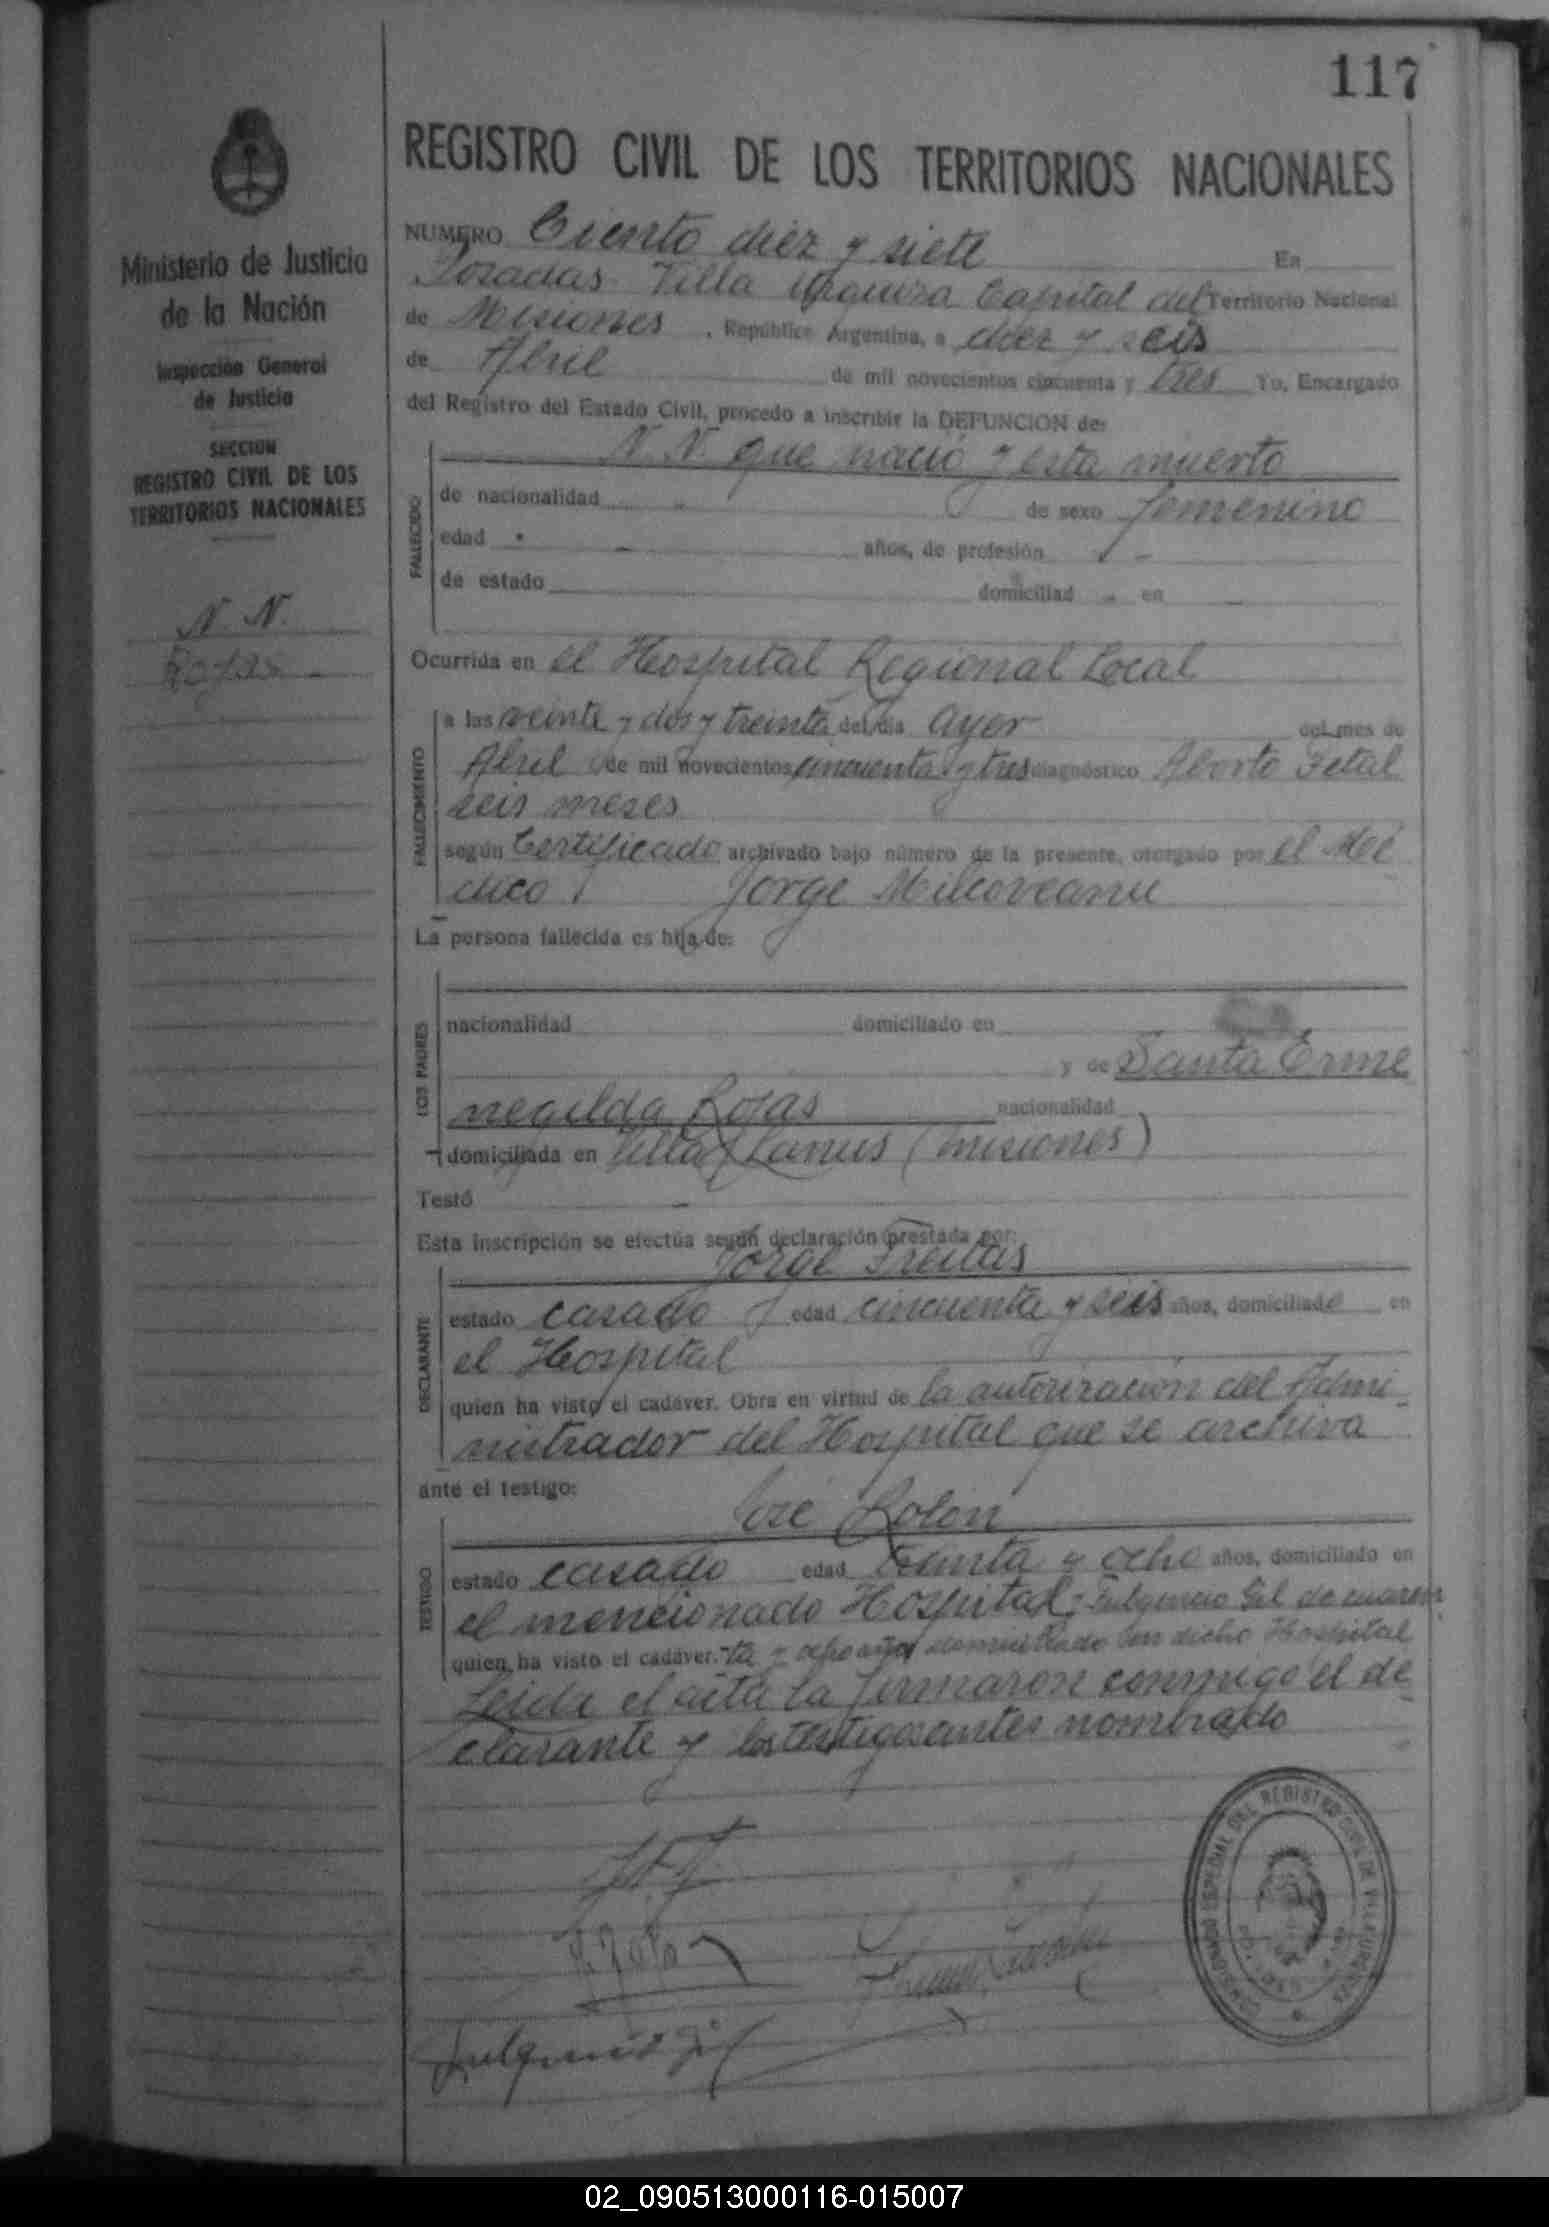 117
REGISTRO CIVIL DE LOS TERRITORIOS NACIONALES
Ministerio de Justicia
de la Nación
Inspección General
de Justicia
SECCION
REGISTRO CIVIL DE LOS
TERRITORIOS NACIONALES
N. N.
Rojas
NUMERO Ciento diez y siete En
Posadas Villa Urquiza Capital del Territorio Nacional
de Misiones, República Argentina, a diez y seis
de Abril de mil novecientos cincuenta y tres Yo, Encargado
del Registro del Estado Civil, procedo a inscribir la DEFUNCION de:
N. N. que nació y esta muerto
FALLECIDO
de nacionalidad " de sexo femenino
edad - años, de profesión -
de estado domiciliad - en -
Ocurrida en el Hospital Regional Local
FALLECIMIENTO
a las veinte y dos y treinta del día ayer del mes de
Abril de mil novecientos cincuenta y tres diagnóstico Aborto Fetal
seis meses
según Certificado archivado bajo número de la presente, otorgado por el Mé
dico Jorge Milcoveanu
La persona fallecida es hija de:
LOS PADRES
nacionalidad domiciliado en
y de Santa Erme
negilda Rojas nacionalidad
domiciliada en Villa Lanus (Misiones)
Testó -
Esta inscripción se efectúa según declaración prestada por:
Jorge Freitas
DECLARANTE
estado casado edad cincuenta y seis años, domiciliado en
el Hospital
quien ha visto el cadáver. Obra en virtud de la autorización del Admi-
nistrador del Hospital que se archiva
ante el testigo:
José Rolon
TESTIGO
estado casado edad treinta y ocho años, domiciliado en
el mencionado Hospital; Fulgencio Gil de cuaren
quien ha visto el cadáver. ta y ocho años domiciliado en dicho Hospital
Leida el acta la firmaron conmigo el de
clarante y los testigos antes nombrado
Fulgencio Gil
COMISIONADO ESPECIAL DEL REGISTRO CIVIL DE VILLA URQUIZA
02_090513000116-015007